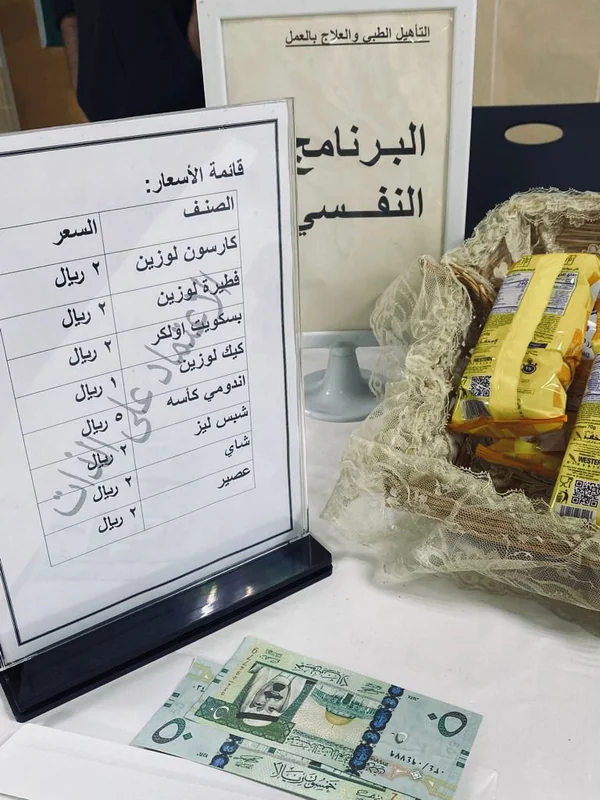 التأهيل الطبي والعلاج بالعمل
البرنامج
النفسي
قائمة الأسعار:
الصنف السعر
كارسون لوزين ٢ ريال
فطيرة لوزين ٢ ريال
بسكويت اولكر ٢ ريال
كيك لوزين ١ ريال
اندومي كأسه ٥ ريال
شبس ليز ٢ ريال
شاي ٢ ريال
عصير ٢ ريال
الاعتماد على الذات
WESTERN
WESTER
70g
٥٠
خمسون ريالا